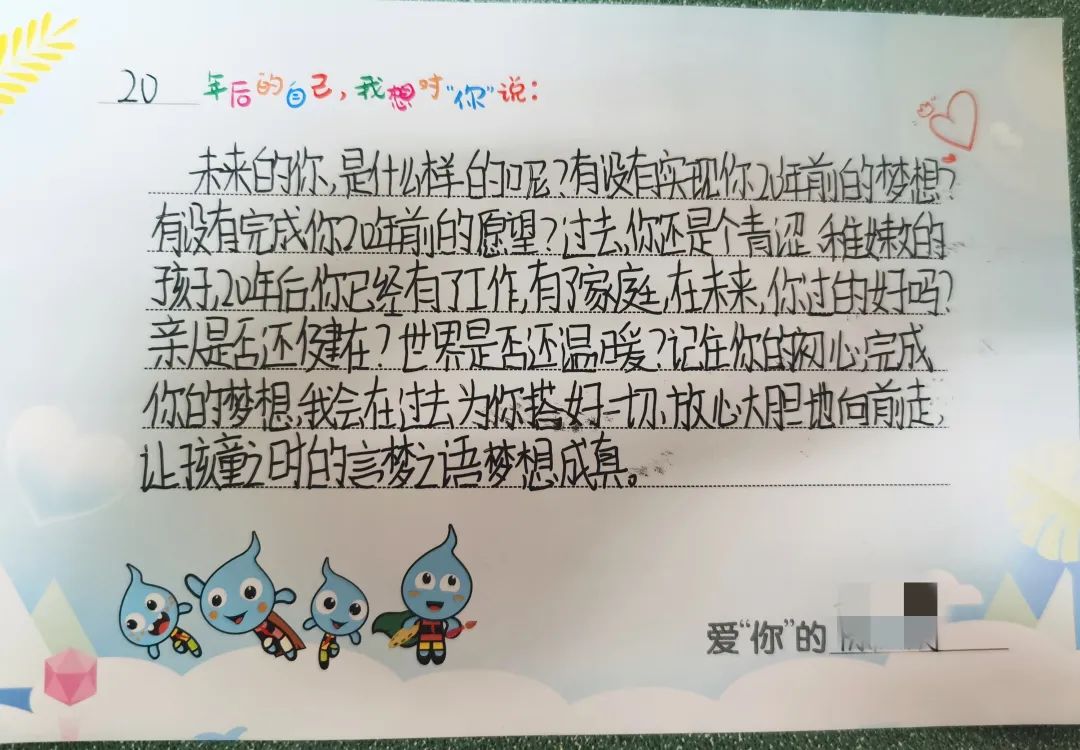 20年后的自己，我想对“你”说：
未来的你，是什么样的呢？有没有实现你20年前的梦想？
有没有完成你20年前的愿望？过去，你还是个青涩、稚嫩的
孩子，20年后，你已经有了工作，有了家庭，在未来，你过的好吗？
亲人是否还健在？世界是否还温暖？记住你的初心，完成
你的梦想，我会在过去，为你搭好一切，放心大胆地向前走，
让孩童之时的言梦之语梦想成真。
爱“你”的